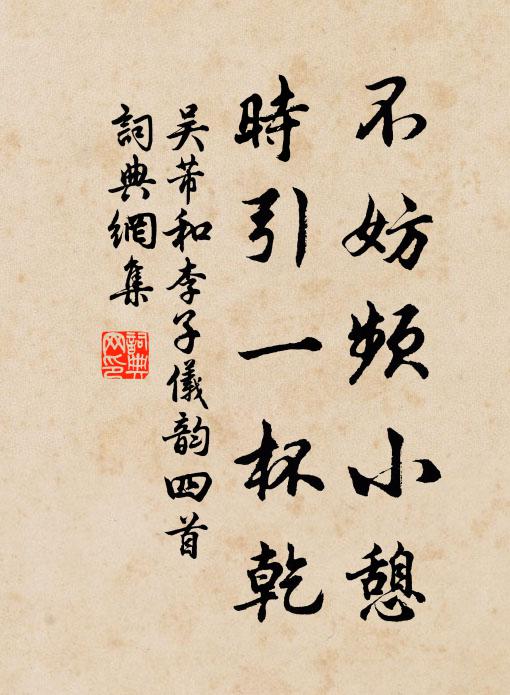 不妨頻小憩
時引一杯乾
吴芾和李子儀韵四首
詞典網集
詞典網印